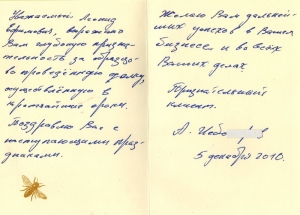 Уважаемый Леонид
Ефимович, выражаю
Вам глубокую призна-
тельность за образцо-
во проведённую
осуществлённую в
кратчайшие сроки.
Поздравляю Вас с
наступающими праз-
дниками.
Желаю Вам дальней-
ших успехов в Вашем
бизнесе и во всех
Ваших делах.
Признательный
клиент.
А.
5 декабря 2010.